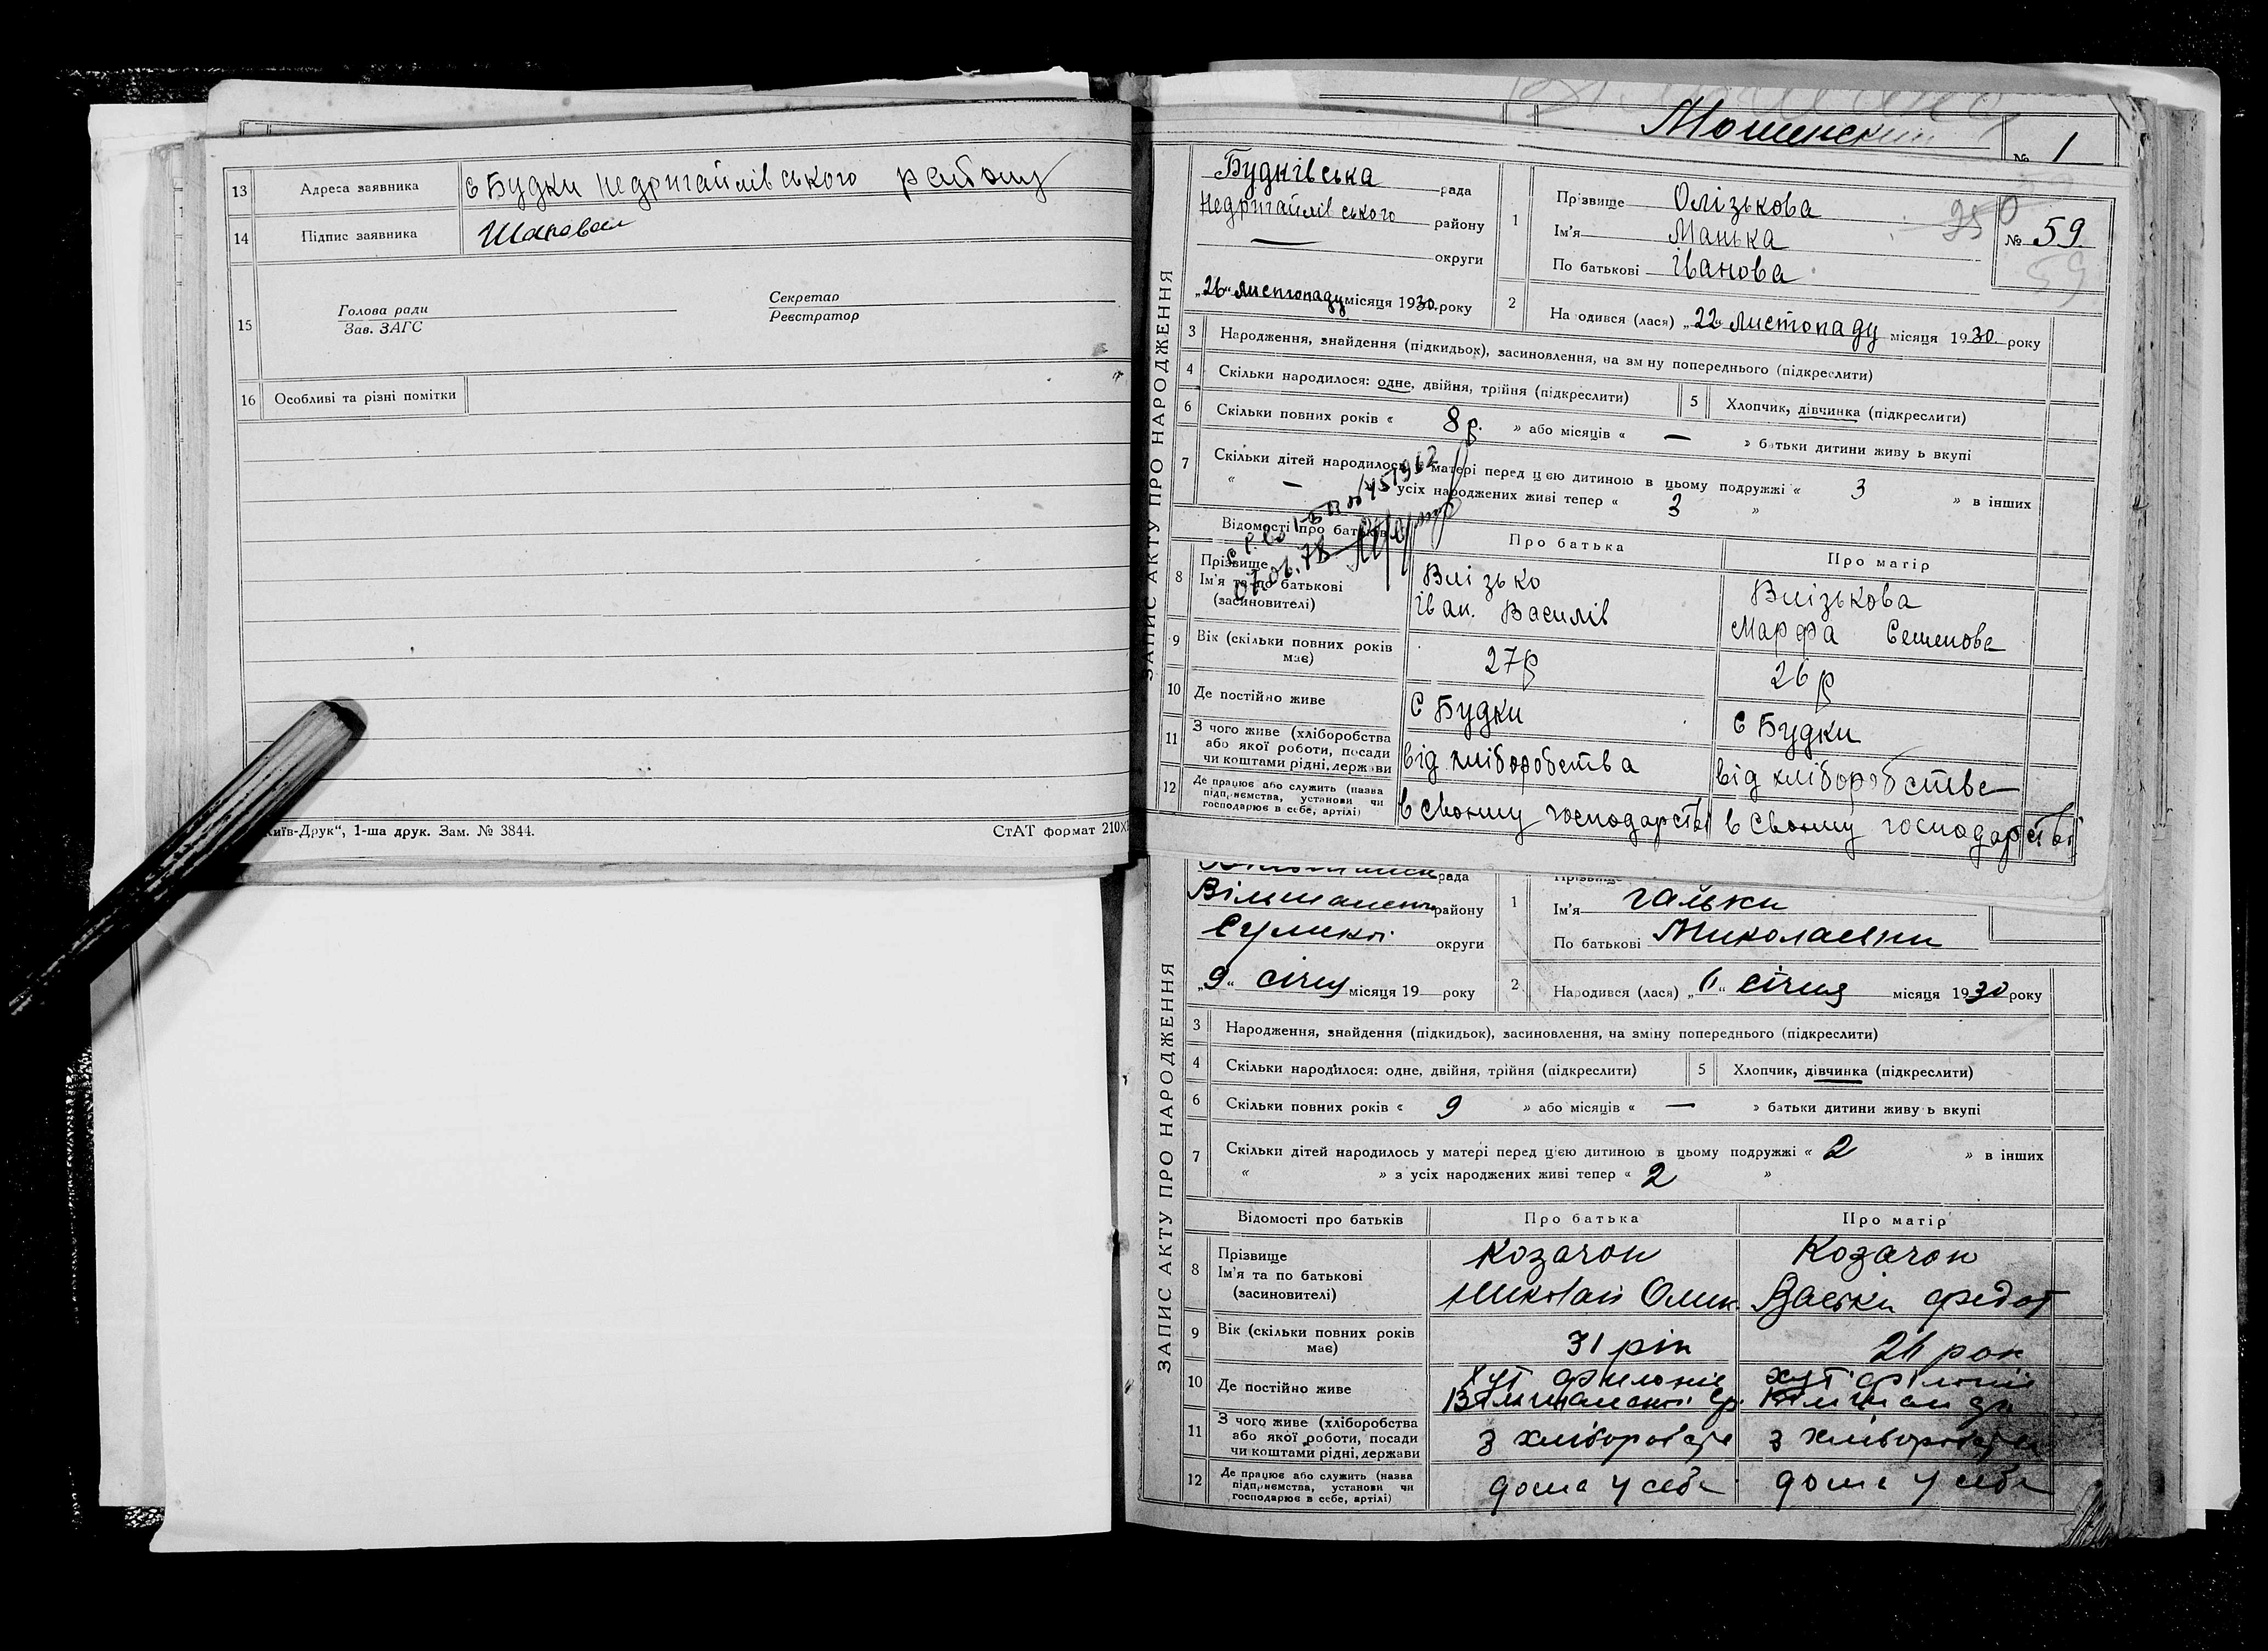 13 Адреса заявника с Будки Недригайлівського району
14 Підпис заявника Шаповал
15 Голова ради
Зав. ЗАГС
Секретар
Реєстратор
16 Особливі та різні помітки
Київ-Друк“, 1-ша друк. Зам. № 3844. СтАТ формат 210Х
№ 1
ЗАПИС АКТУ ПРО НАРОДЖЕННЯ
Будківська рада
Недригайлівського району
— округи
„26“ листопаду місяця 1930 року
1 Прізвище Олізькова
Ім'я Манька
По батькові Іванова
№ 59
59
2 На одився (лася) „22“ листопаду місяця 1930 року
3 Народження, знайдення (підкидьок), засиновлення, на зм ну попереднього (підкреслити)
4 Скільки народилося: одне, двійня, трійня (підкреслити) 5 Хлопчик, дівчинка (підкреслити)
6 Скільки повних років « 8 р. » або місяців « — » батьки дитини живу ь вкупі
7 Скільки дітей народилось у матері перед цією дитиною в цьому подружжі « 3 » в інших
« — усіх народжених живі тепер « 3 »
Відомості про батьків Про батька Про матір
8 Прізвище
Ім'я та по батькові
(засиновителі)
Влізько
Іван Василів
Влізькова
Марфа Семенова
9 Вік (скільки повних років має) 27 р 26 р
10 Де постійно живе с Будки с Будки
11 З чого живе (хліборобства
або якої роботи, посади
чи коштами рідні, держави
від хліборобства від хліборобства
12 Де працює або служить (назва
підприємства, установи чи
господарює в себе, артілі)
в своєму господарстві в своєму господарстві
ЗАПИС АКТУ ПРО НАРОДЖЕННЯ
рада
району
округи
„9“ січня місяця 19 — року
1 Ім'я Гальки
По батькові Миколаєвни
2 Народився (лася) січня місяця 1930 року
3 Народження, знайдення (підкидьок), засиновлення, на зміну попереднього (підкреслити)
4 Скільки народилося: одне, двійня, трійня (підкреслити) 5 Хлопчик, дівчинка (підкреслити)
6 Скільки повних років « 9 » або місяців « — » батьки дитини живу ь вкупі
7 Скільки дітей народилось у матері перед цією дитиною в цьому подружжі « 2 » в інших
« » з усіх народжених живі тепер « 2 »
Відомості про батьків Про батька Про матір
8 Прізвище
Ім'я та по батькові
(засиновителі)
Козачок
Николай
Козачок
Федот
9 Вік (скільки повних років має) 31 рік 26 рок
10 Де постійно живе хут хут
11 З чого живе (хліборобства
або якої роботи, посади
чи коштами рідні, держави
12 Де працює або служить (назва
підприємства, установи чи
господарює в себе, артілі)
дома у себе дома у себе